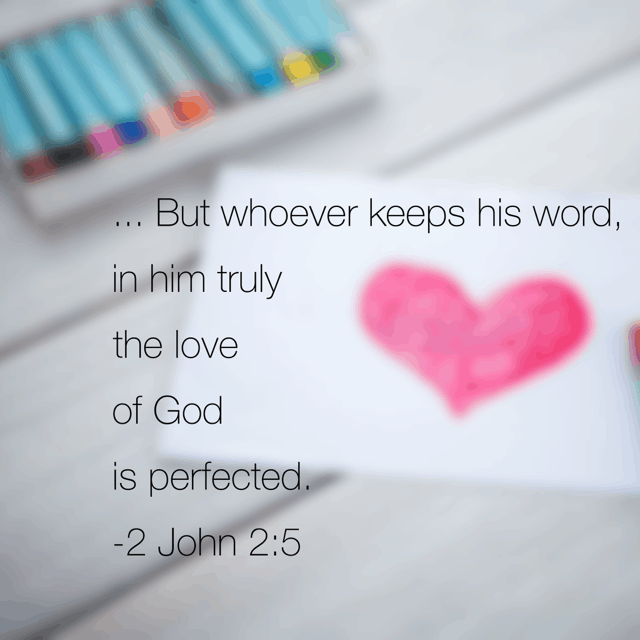 ... But whoever keeps his word,
in him truly
the love
of God
is perfected.
-2 John 2:5